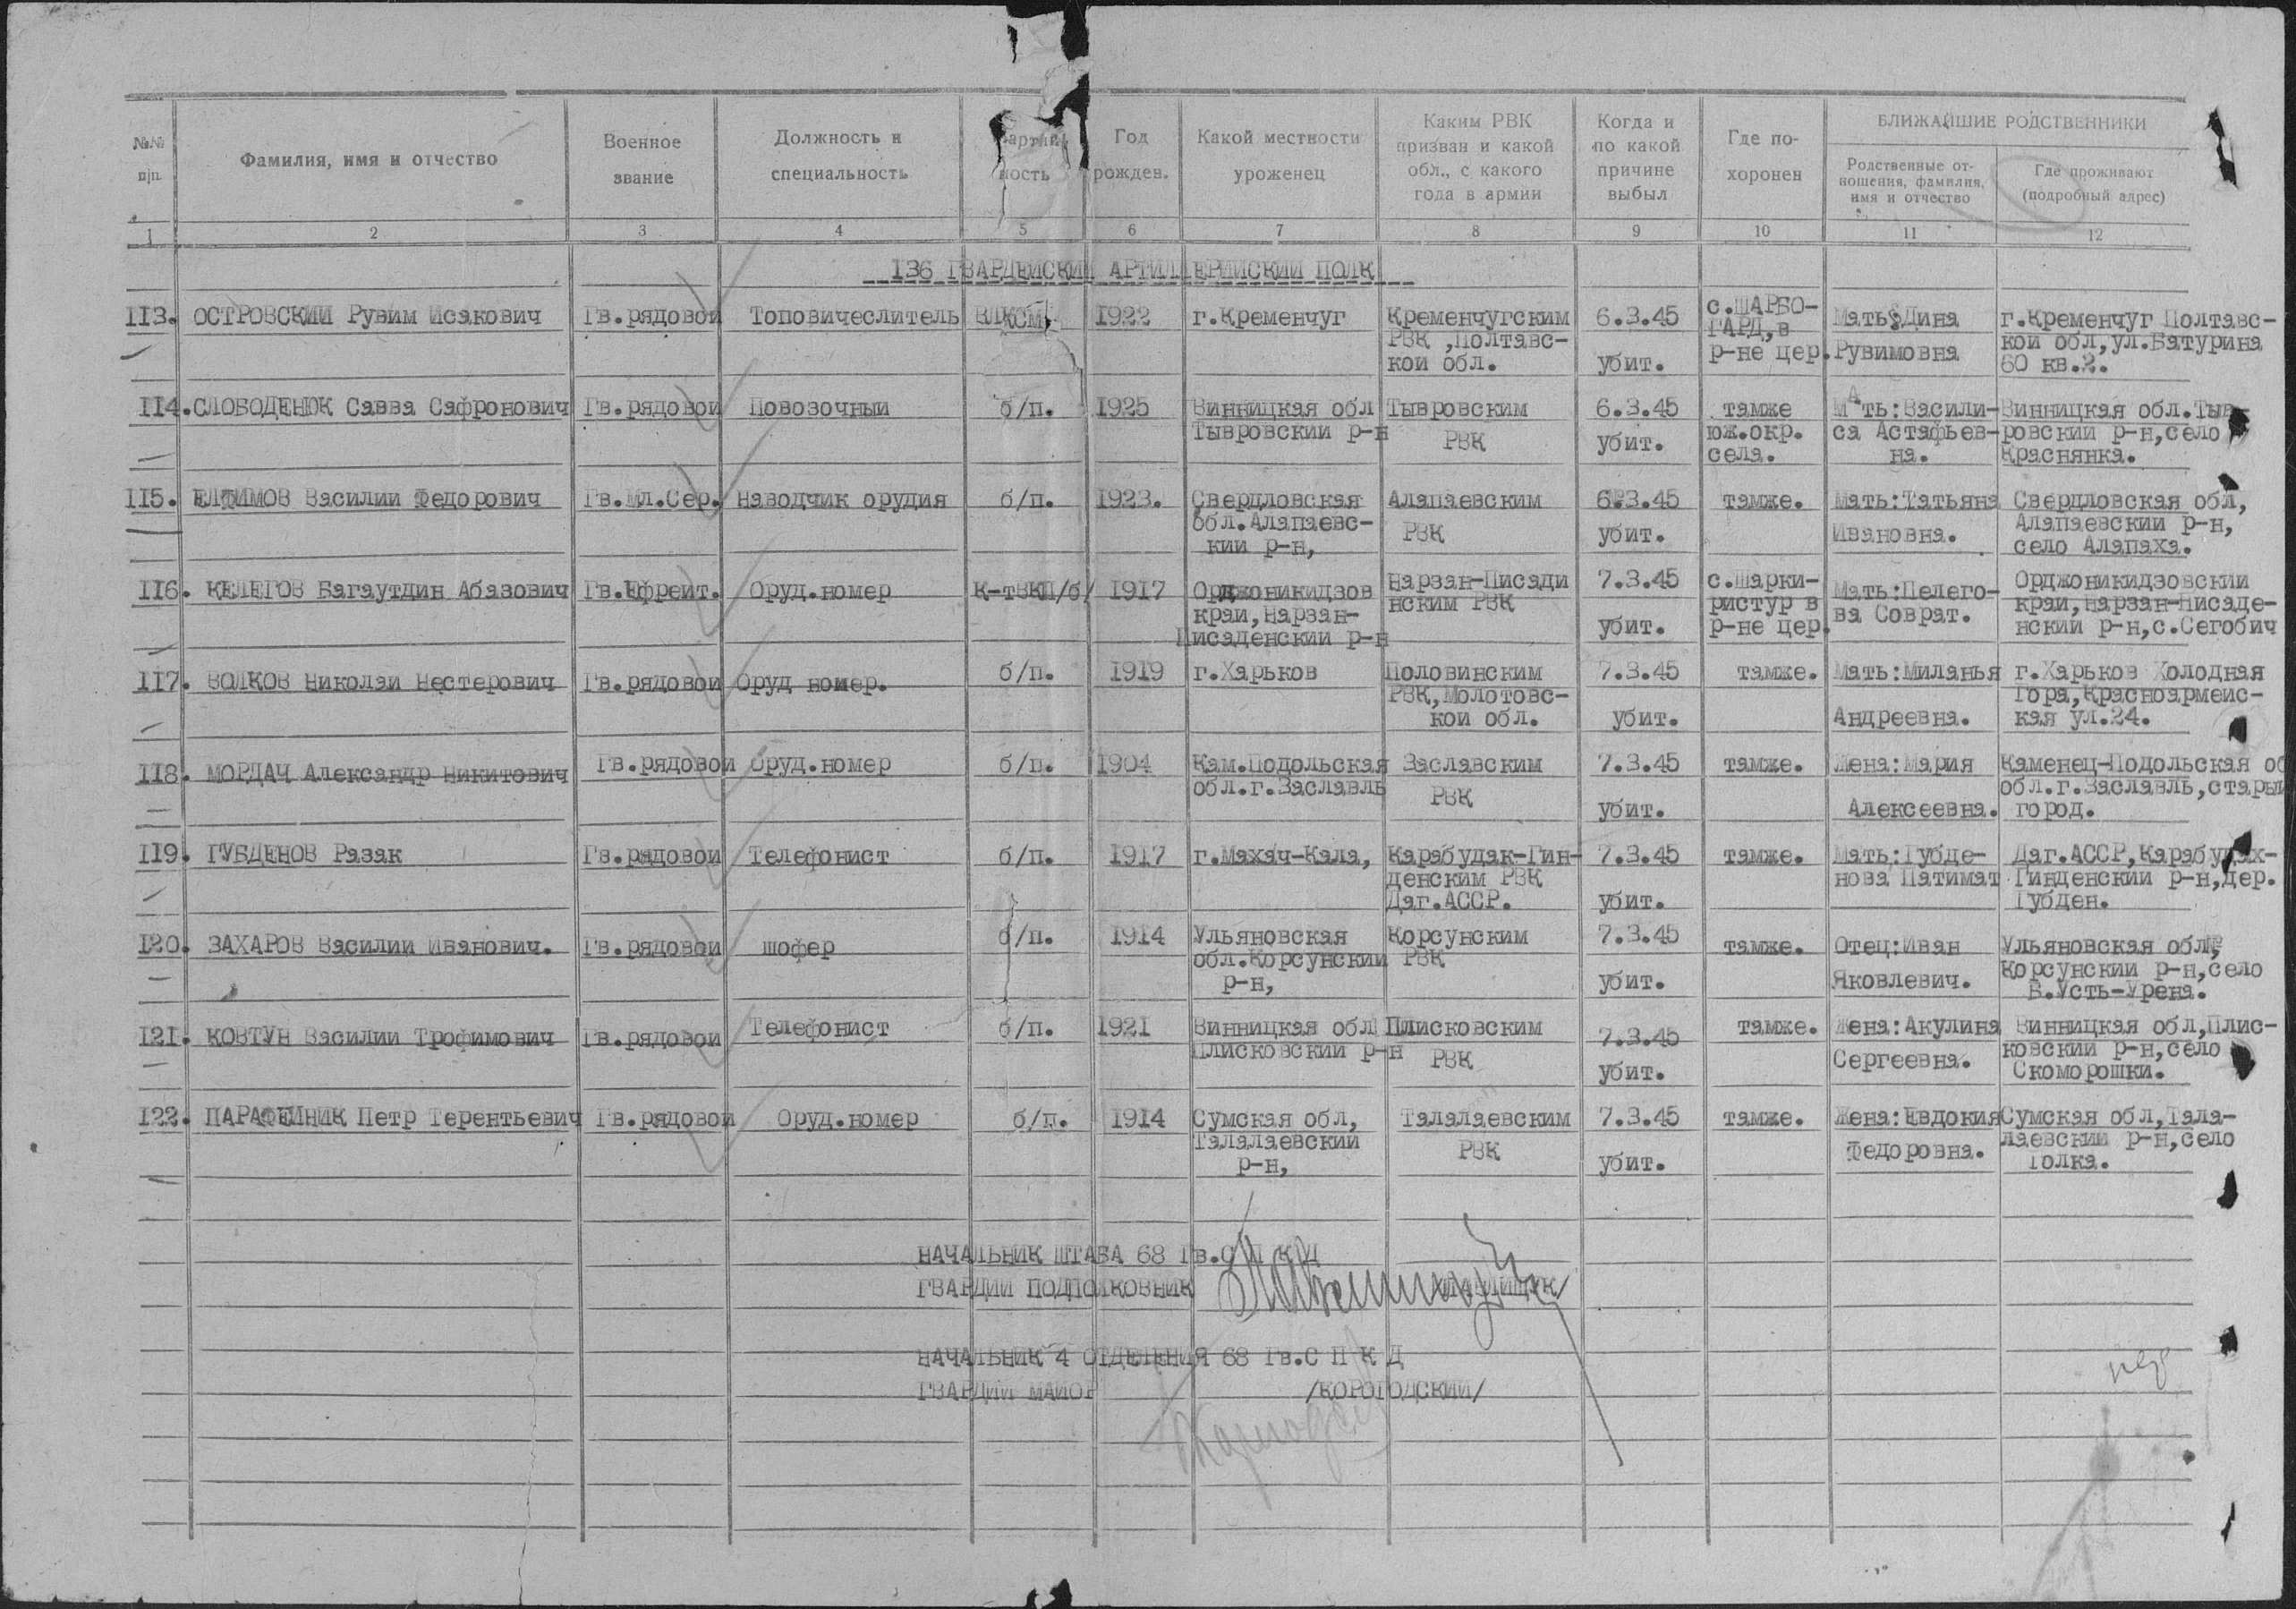 №№ п/п.
Фамилия, имя и отчество
Военное звание
Должность и специальность
Год рожден.
Какой местности уроженец
Каким РВК призван и какой обл., с какого года в армии
Когда и по какой причине выбыл
Где похоронен
БЛИЖАЙШИЕ РОДСТВЕННИКИ
Родственные отношения, фамилия, имя и отчество
Где проживают (подробный адрес)
1 2 3 4 5 6 7 8 9 10 11 12
136 ГВАРДЕЙСКИЙ АРТИЛЛЕРИЙСКИЙ ПОЛК
113. ОСТРОВСКИЙ Рувим Исакович Гв.рядовой Топовичеслитель ВЛКСМ. 1922 г.Кременчуг Кременчугским 6.3.45 с.ШАРБО- Мать:Дина г.Кременчуг Полтавс-
РВК ,Полтавс- ГАРД,в кой обл,ул.Батурина
кой обл. убит. р-не цер. Рувимовна 60 кв.2.
114. СЛОБОДЕНЮК Савва Сафронович Гв.рядовой Повозочный б/п. 1925 Винницкая обл Тывровским 6.3.45 тамже Мать:Васили- Винницкая обл.Тыв-
Тывровский р-н РВК убит. юж.окр. са Астафьев- ровский р-н,село
села. на. Краснянка.
115. ЕЛФИМОВ Василий Федорович Гв.Мл.Сер. Наводчик орудия б/п. 1923. Свердловская Алапаевским 6.3.45 тамже. Мать:Татьяна Свердловская обл,
обл.Алапаевс- РВК убит. Ивановна. Алапаевский р-н,
кий р-н, село Алапаха.
116. КЕЛЕГОВ Багаутдин Абазович Гв.Ефрейт. Оруд.номер К-тВКП/б/ 1917 Орджоникидзов Нарзан-Писади 7.3.45 с.Шарки- Мать:Целего- Орджоникидзовский
край,Нарзан- нским РВК ристур в ва Соврат. край,Нарзан-Писаде-
Писаденский р-н убит. р-не цер. нский р-н,с.Сегобич
117. ВОЛКОВ Николай Нестерович Гв.рядовой Оруд номер. б/п. 1919 г.Харьков Половинским 7.3.45 тамже. Мать:Миланья г.Харьков Холодная
РВК,Молотовс- Гора,Красноармейс-
кой обл. убит. Андреевна. кая ул.24.
118. МОРДАЧ Александр Никитович Гв.рядовой Оруд.номер б/п. 1904 Кам.Подольская Заславским 7.3.45 тамже. Жена:Мария Каменец-Подольская об
обл.г.Заславль РВК обл.г.Заславль,старый
убит. Алексеевна. город.
119. ГУБДЕНОВ Разак Гв.рядовой Телефонист б/п. 1917 г.Махач-Кала, Карабудак-Гин- 7.3.45 тамже. Мать:Губде- Даг.АССР,Карабудах-
денским РВК нова Патимат Гинденский р-н,дер.
Даг.АССР. убит. Губден.
120. ЗАХАРОВ Василий Иванович. Гв.рядовой шофер б/п. 1914 Ульяновская Корсунским 7.3.45 тамже. Отец:Иван Ульяновская обл,
обл.Корсунский РВК Корсунский р-н,село
р-н, убит. Яковлевич. В.Усть-Урена.
121. КОВТУН Василий Трофимович Гв.рядовой Телефонист б/п. 1921 Винницкая обл Плисковским 7.3.45 тамже. Жена:Акулина Винницкая обл,Плис-
Плисковский р-н РВК Сергеевна. ковский р-н,село
убит. Скоморошки.
122. ПАРАФЕЙНИК Петр Терентьевич Гв.рядовой Оруд.номер б/п. 1914 Сумская обл, Талалаевским 7.3.45 тамже. Жена:Евдокия Сумская обл,Тала-
Талалаевский РВК лаевский р-н,село
р-н, убит. Федоровна. Голка.
НАЧАЛЬНИК ШТАБА 68 Гв.С П К Д
ГВАРДИИ ПОДПОЛКОВНИК
НАЧАЛЬНИК 4 ОТДЕЛЕНИЯ 68 Гв.С П К Д
ГВАРДИИ МАЙОР /КОРОГОДСКИЙ/